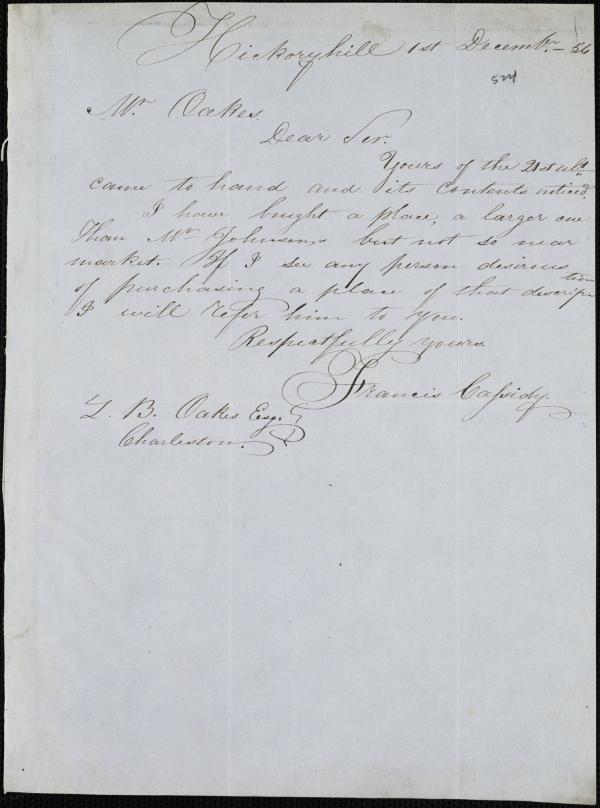 Hickoryhill 1st Decembr. - 56
524
Mr. Oakes.
Dear Ser.
Yours of the 21st ult.
came to hand and its Contents noticed.
I have bought a place, a larger one
Than Mr. Johnson,s but not so near
market. If I see any person desirous
of purchasing a place of that description
I will refer him to You.
Respectfully Yours.
Francis Cassidy.
Z. B. Oakes Esq.
Charleston.